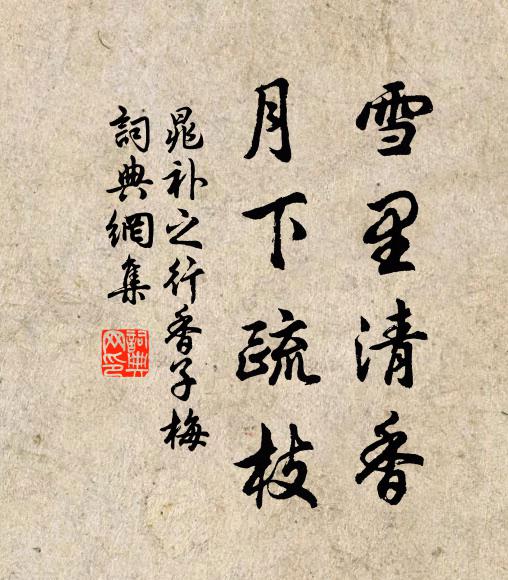 雪里清香
月下疏枝
晁补之行香子梅
詞典網集
詞典网印